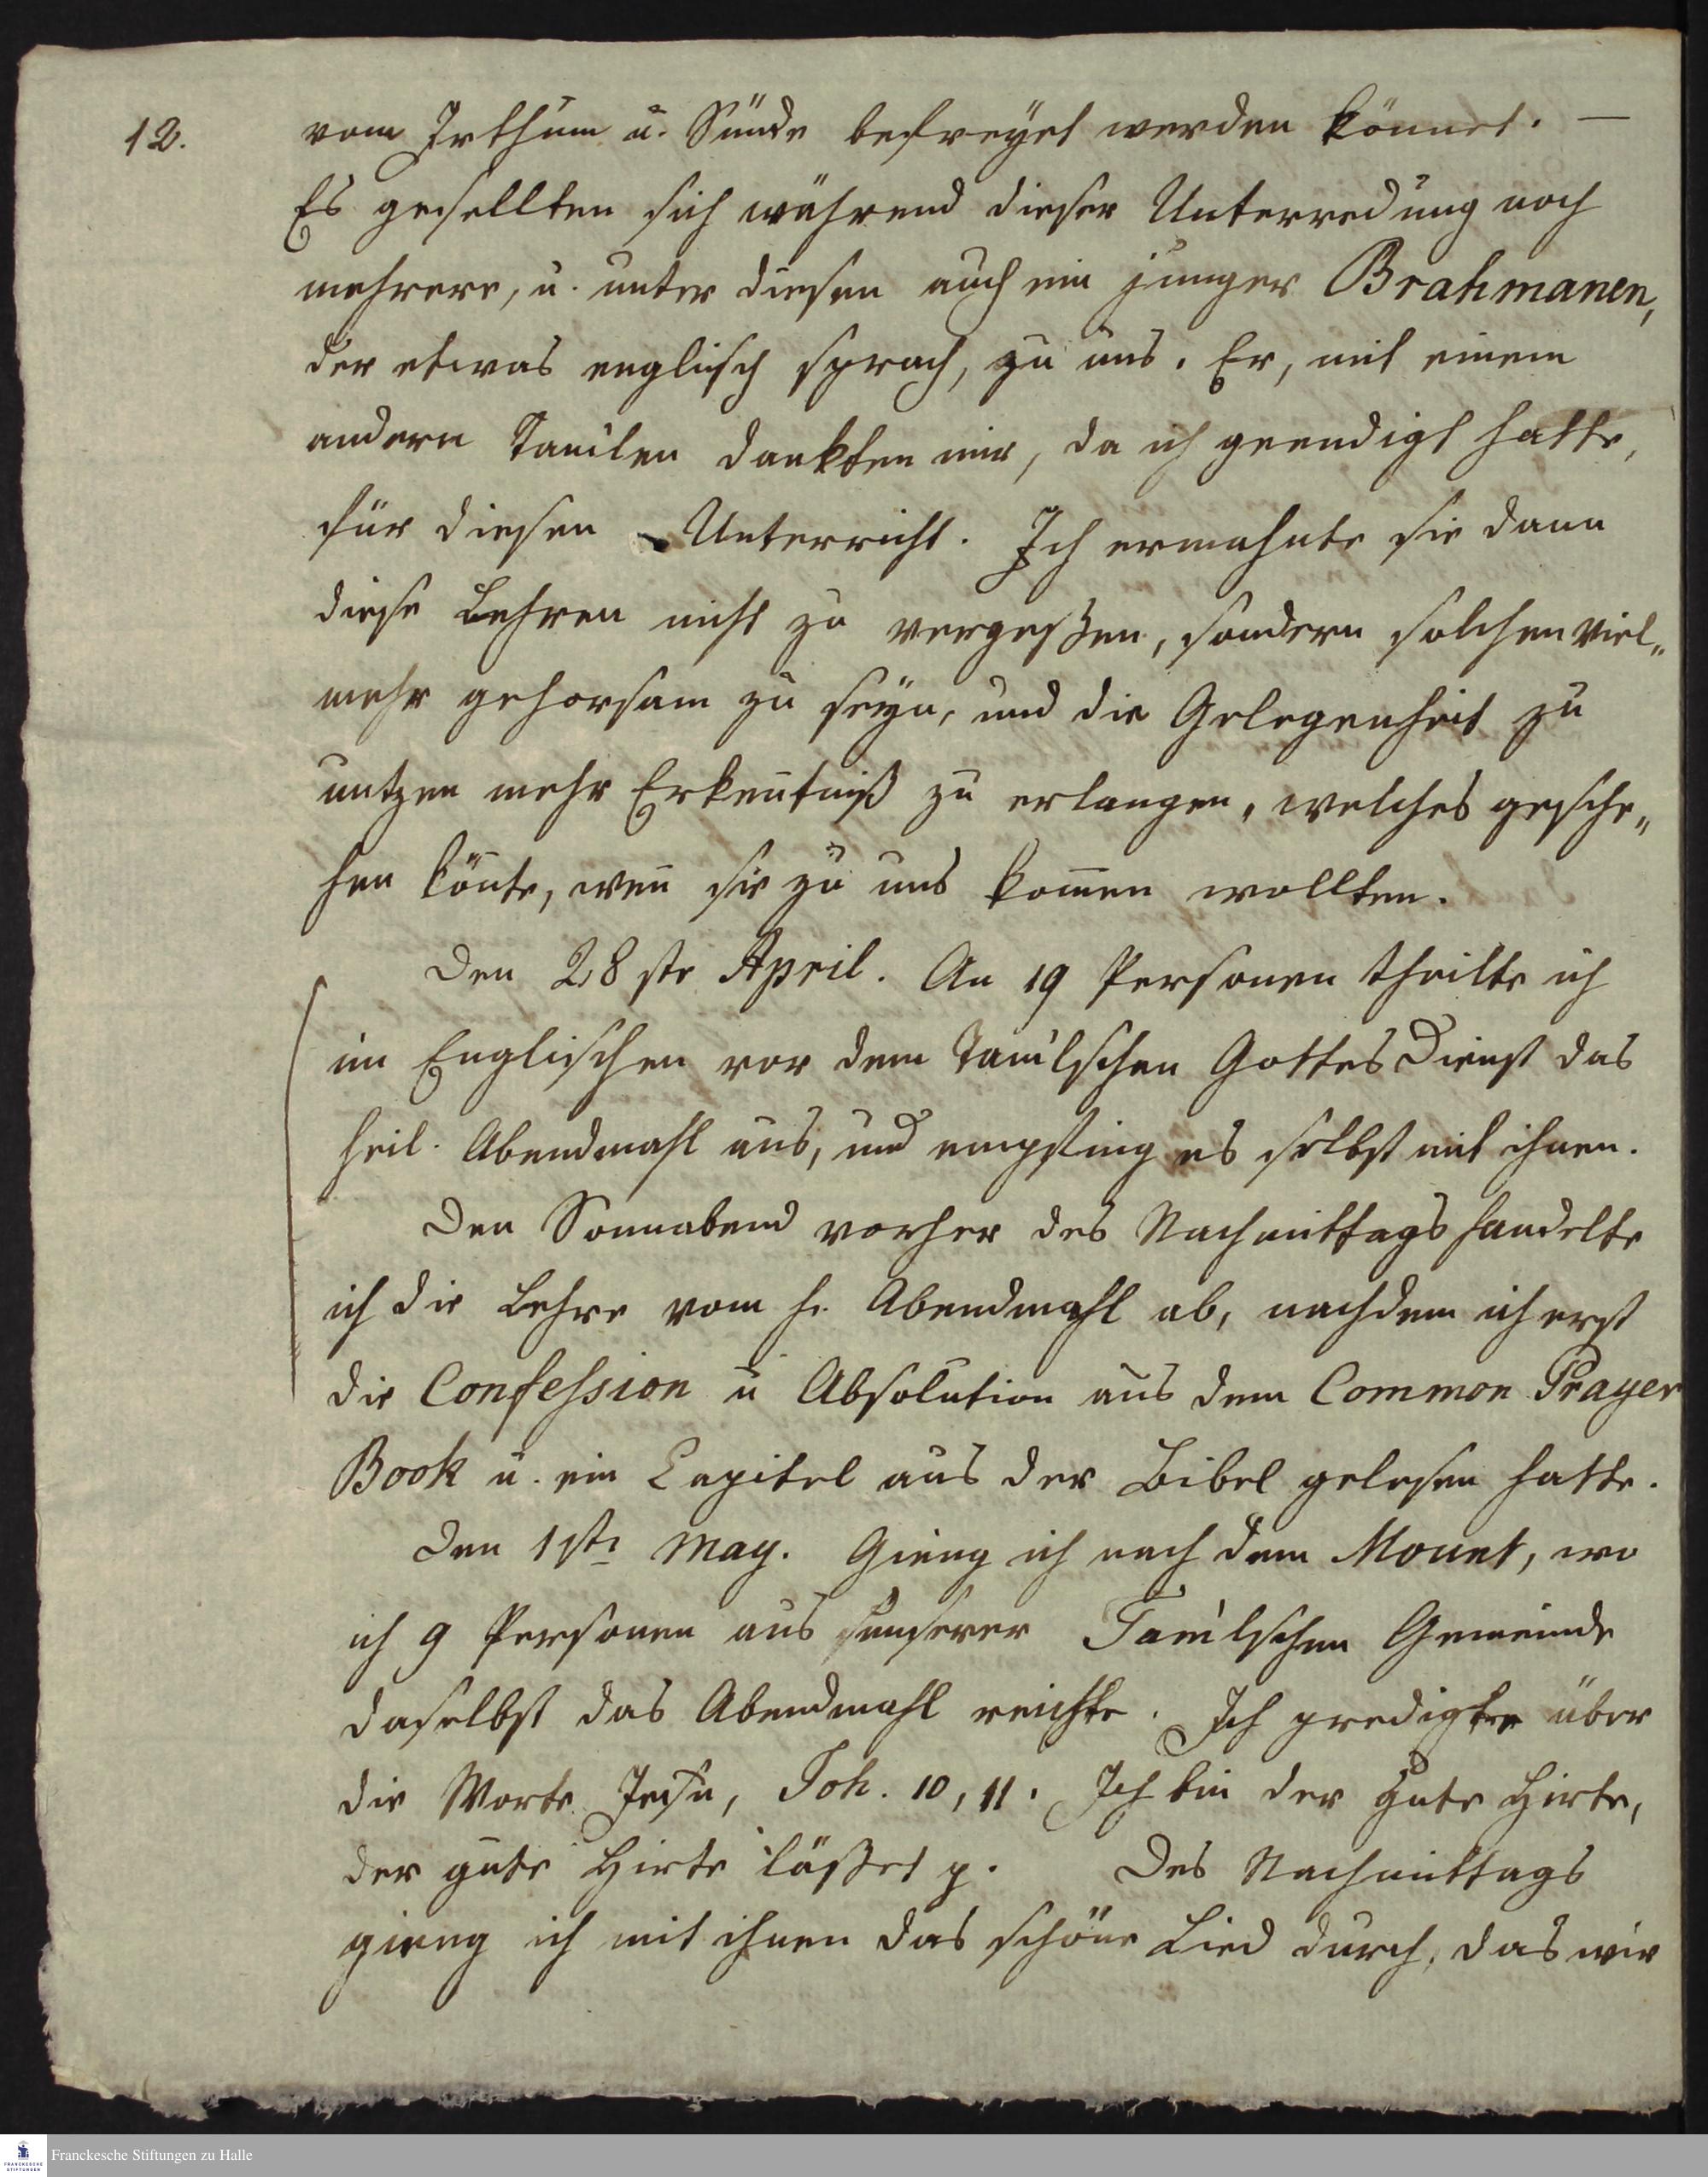 12.
vom Irthum u. Sünde befreyet werden könnet. —
Es gesellten sich während dieser Unterredung noch
mehrere, u. unter diesen auch ein junger Brahmanen,
der etwas englisch sprach, zu uns. Er, mit einem
andern Tamilen dankten mir, da ich geendigt hatte,
für diesen Unterricht. Ich ermahnte sie dann
diese Lehren nicht zu vergeßen, sondern solchen viel„
mehr gehorsam zu seyn, und die Gelegenheit zu
nutzen mehr Erkentniß zu erlangen, welches gesche„
hen könte, wen̄ sie zu uns kom̄en wollten.
Den 28ste April. An 19 Personen theilte ich
im Englischen vor dem Tamilschen Gottesdienst das
heil. Abendmahl aus, und empfing es selbst mit ihnen.
Den Sonnabend vorher des Nachmittags handelte
ich die Lehre vom h. Abendmahl ab, nachdem ich erst
die Confession u Absolution aus dem Common Prayer
Book u. ein Capitel aus der Bibel gelesen hatte.
Den 1ste May. Gieng ich nach dem Mount, wo
ich 9 Personen aus unserer Tamilschen Gemeinde
daselbst das Abendmahl reichte. Ich predigte über
die Worte Jesu, Joh. 10, 11. Ich bin der gute Hirte,
der gute Hirte läßet p. Des Nachmittags
gieng ich mit ihnen das schöne Lied durch, das wir
Franckesche Stiftungen zu Halle
FRANCKESCHE
STIFTUNGEN